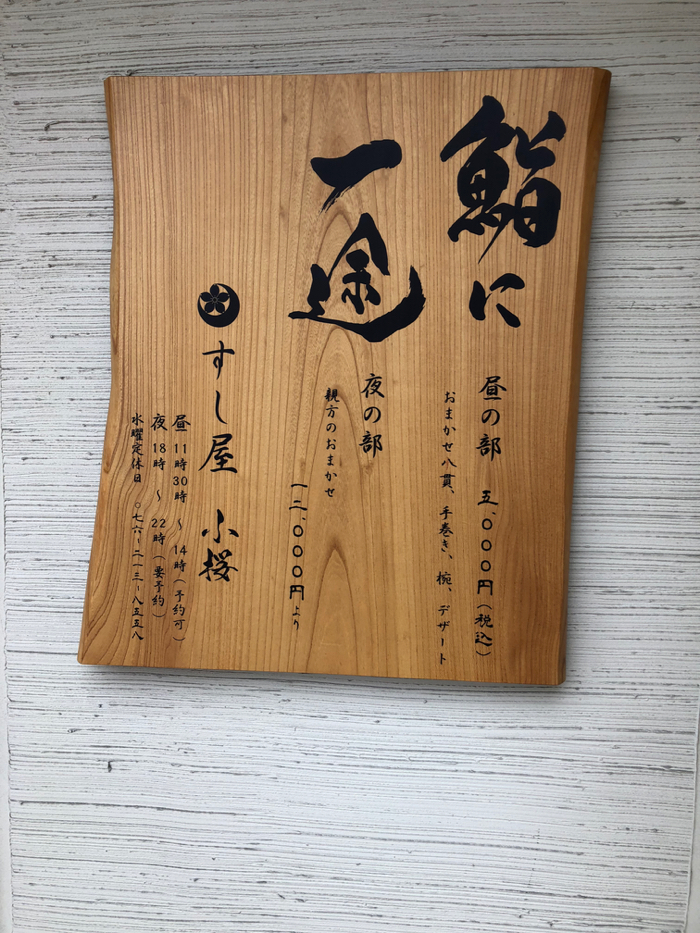 鮨に
一途
昼の部 五、〇〇〇円(税込)
おまかせ八貫、手巻き、椀、デザート
夜の部
親方のおまかせ
一二、〇〇〇円より
すし屋 小桜
昼 11時30時 ~ 14時(予約可)
夜 18時 ~ 22時(要予約)
水曜定休日 〇七六-二一三-八五五八